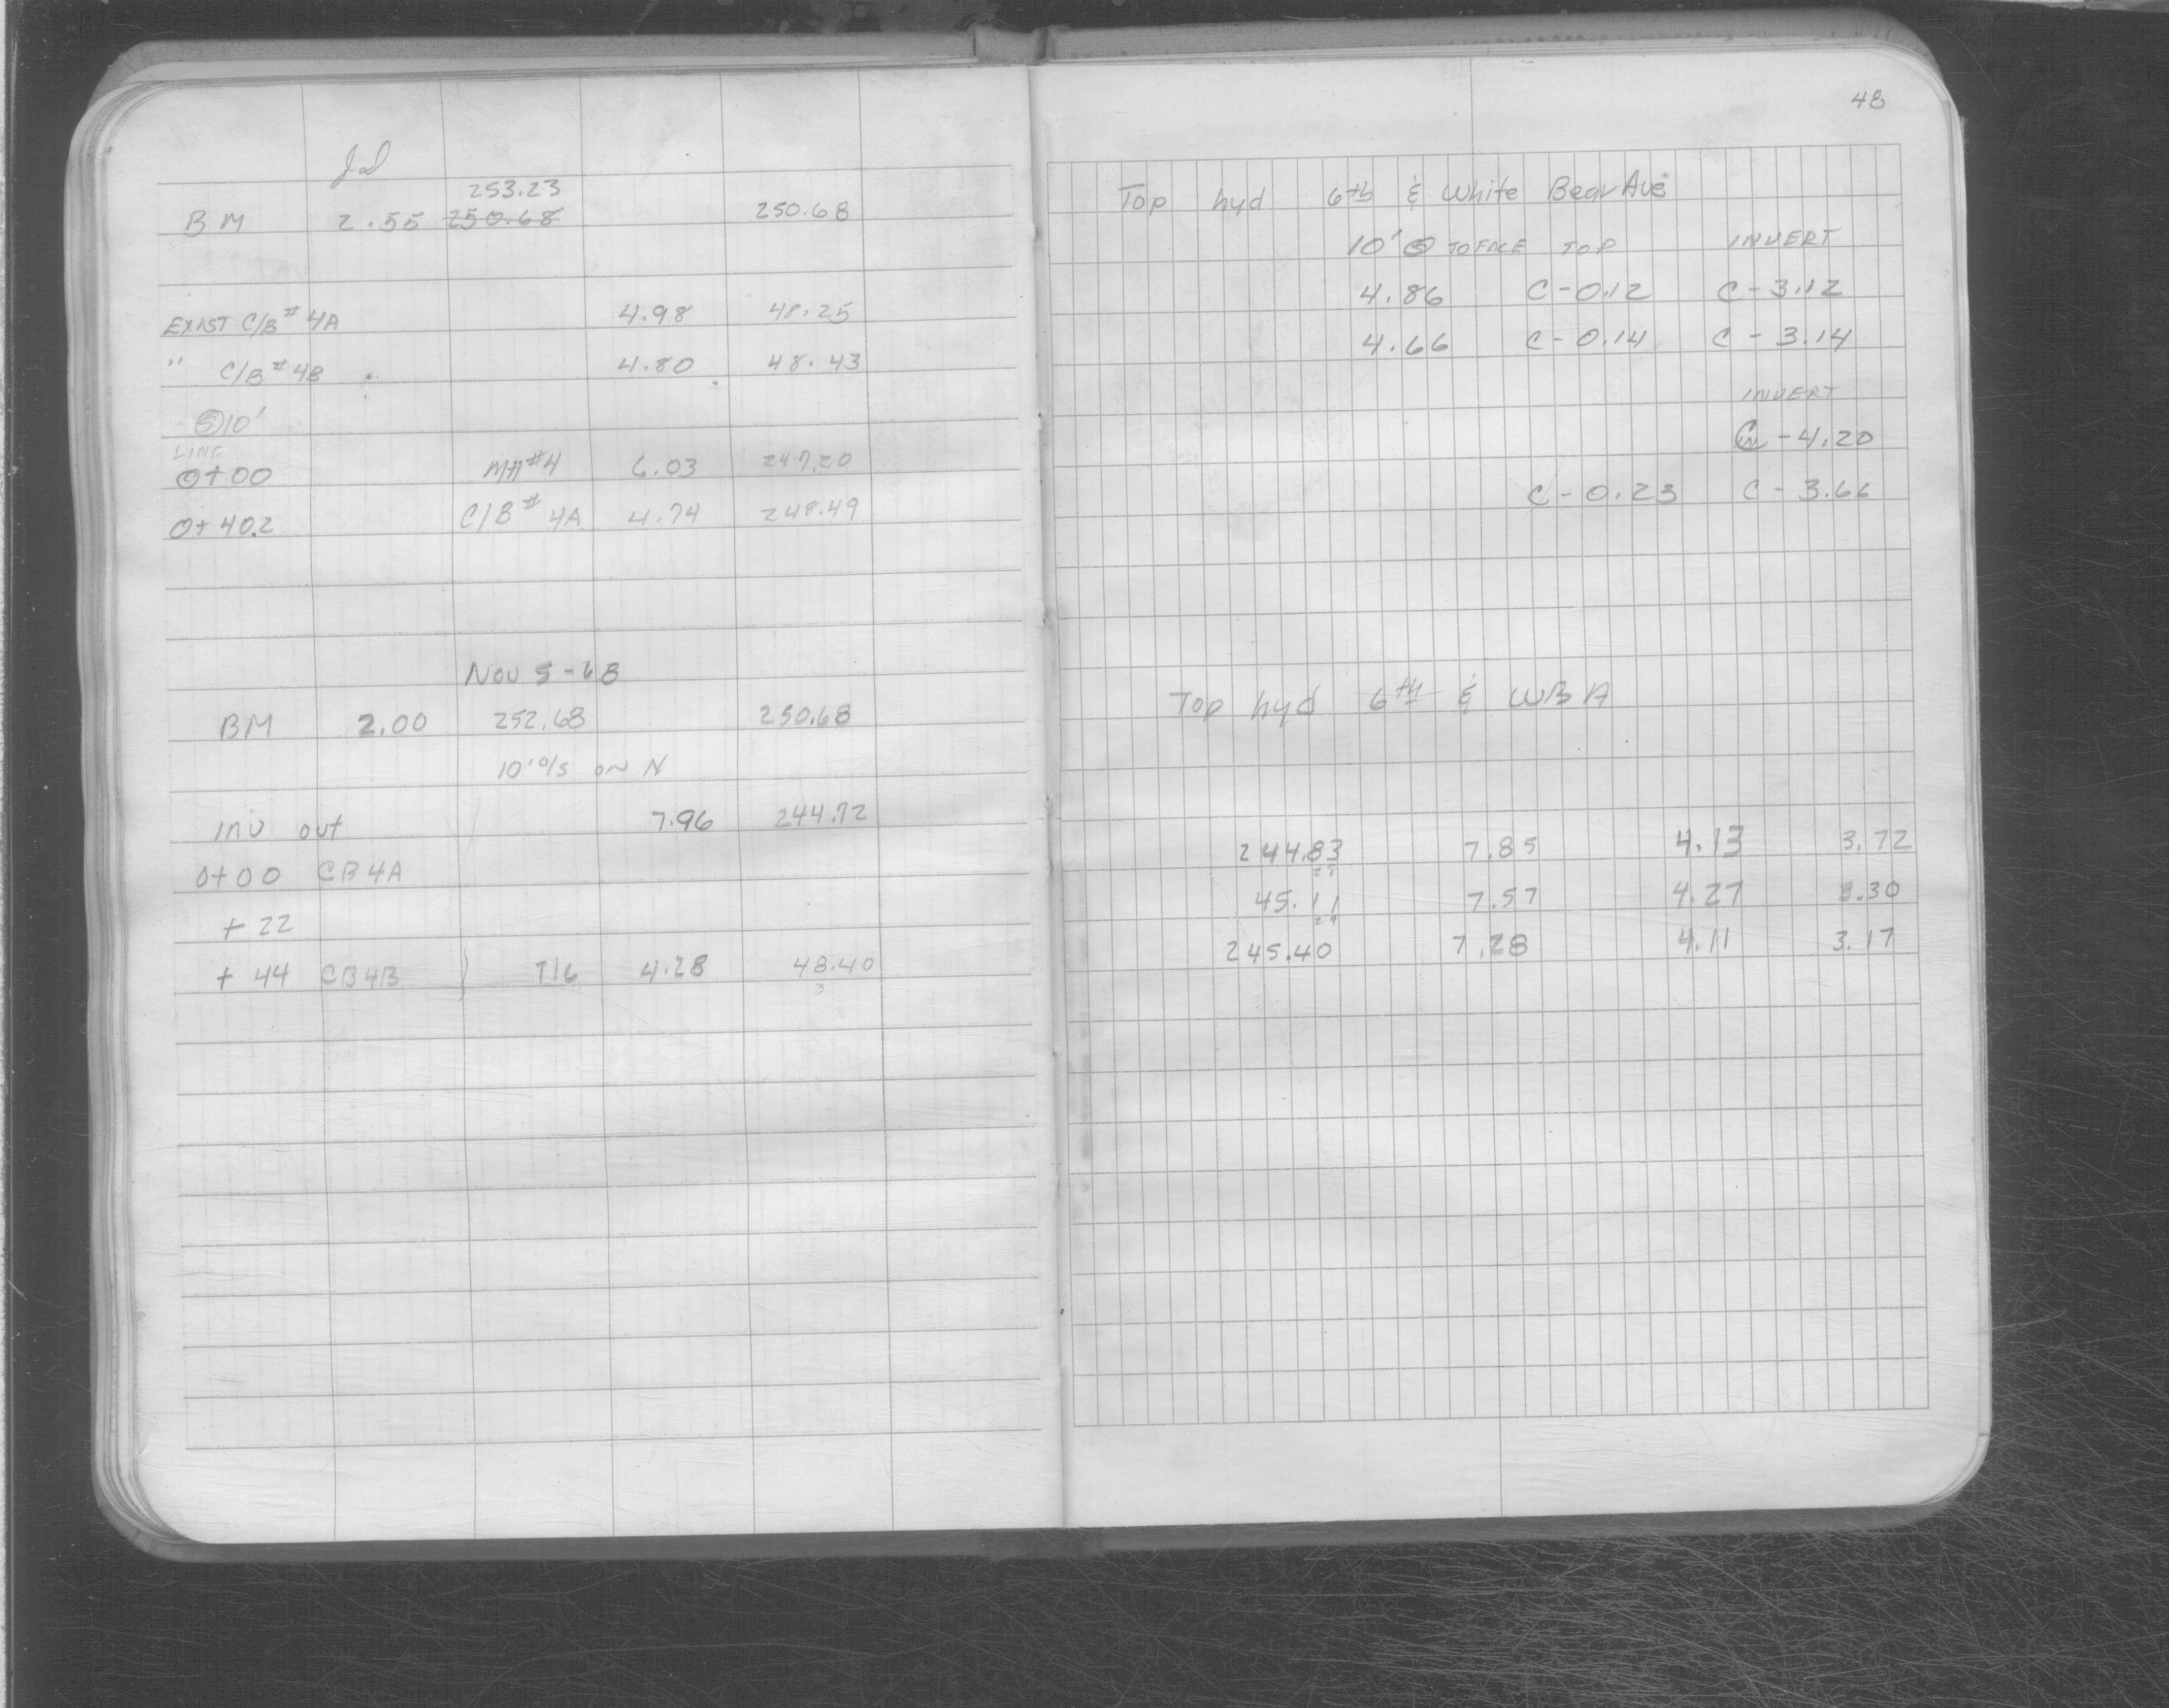 Jd
253.23
BM 2.55 250.68 250.68
EXIST C/B # 4A 4.98 48.25
" C/B # 4B 4.80 48.43
Ⓢ10'
LINE
0+00 MH #4 6.03 247.20
0+40.2 C/B # 4A 4.74 248.49
Nov 5-68
BM 2.00 252.68 250.68
10' o/s on N
INV out 7.96 244.72
0+00 CB4A
+22
+44 CB4B } T16 4.28 48.40
3
48
Top hyd 6th & White Bear Ave
10' Ⓢ TO FACE TOP INVERT
4.86 C-0.12 C-3.12
4.66 C-0.14 C-3.14
INVERT
C-4.20
C-0.23 C-3.66
Top hyd 6th & WBA
244.83 7.85 4.13 3.72
28
45.11 7.57 4.27 3.30
29
245.40 7.28 4.11 3.17